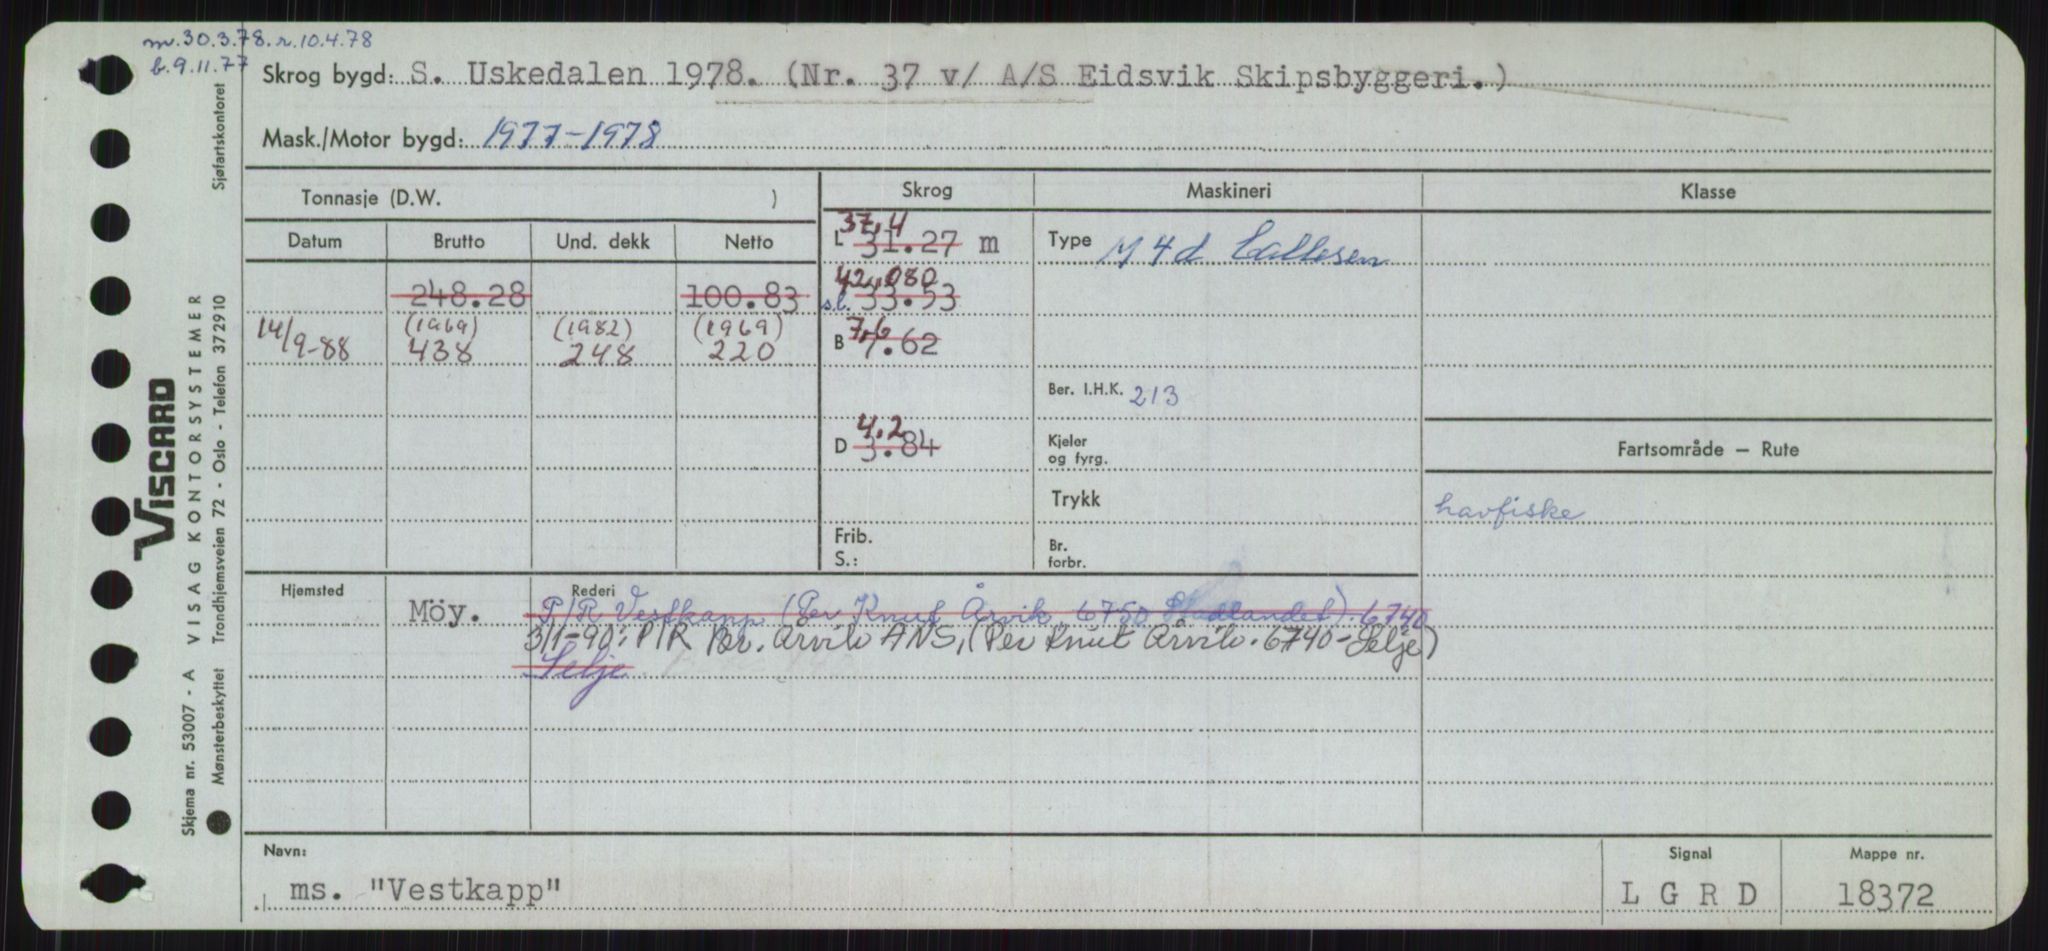 m. 30.3.78. r. 10.4.78
b. 9.11.77
Skrog bygd: S. Uskedalen 1978. (Nr. 37 v/ A/S Eidsvik Skipsbyggeri.)
Mask./Motor bygd: 1977-1978
Tonnasje (D.W. ) Skrog Maskineri Klasse
Datum Brutto Und. dekk Netto
L 37,4 31.27 m Type M 4 d Callesen
248.28 100.83 s.l. 42,080 33.53
14/9-88 (1969) 438 (1982) 248 (1969) 220 B 7,6 7.62
Ber. I.H.K. 213
D 4.2 3.84 Kjeler og fyrg. Fartsområde — Rute
Trykk havfiske
Frib. S.: Br. forbr.
Hjemsted Rederi
Möy. P/R Vestkapp (Per Knut Årvik, 6750 Stadlandet). 6740
3/1-90: P/R Br. Årvik ANS, (Per Knut Årvik. 6740-Selje)
Selje
Navn: Signal Mappe nr.
ms. "Vestkapp" L G R D 18372
Sjøfartskontoret
VISCARD
Skjema nr. 53007 - A VISAG KONTORSYSTEMER
Mønsterbeskyttet Trondhjemsveien 72 - Oslo - Telefon 372910